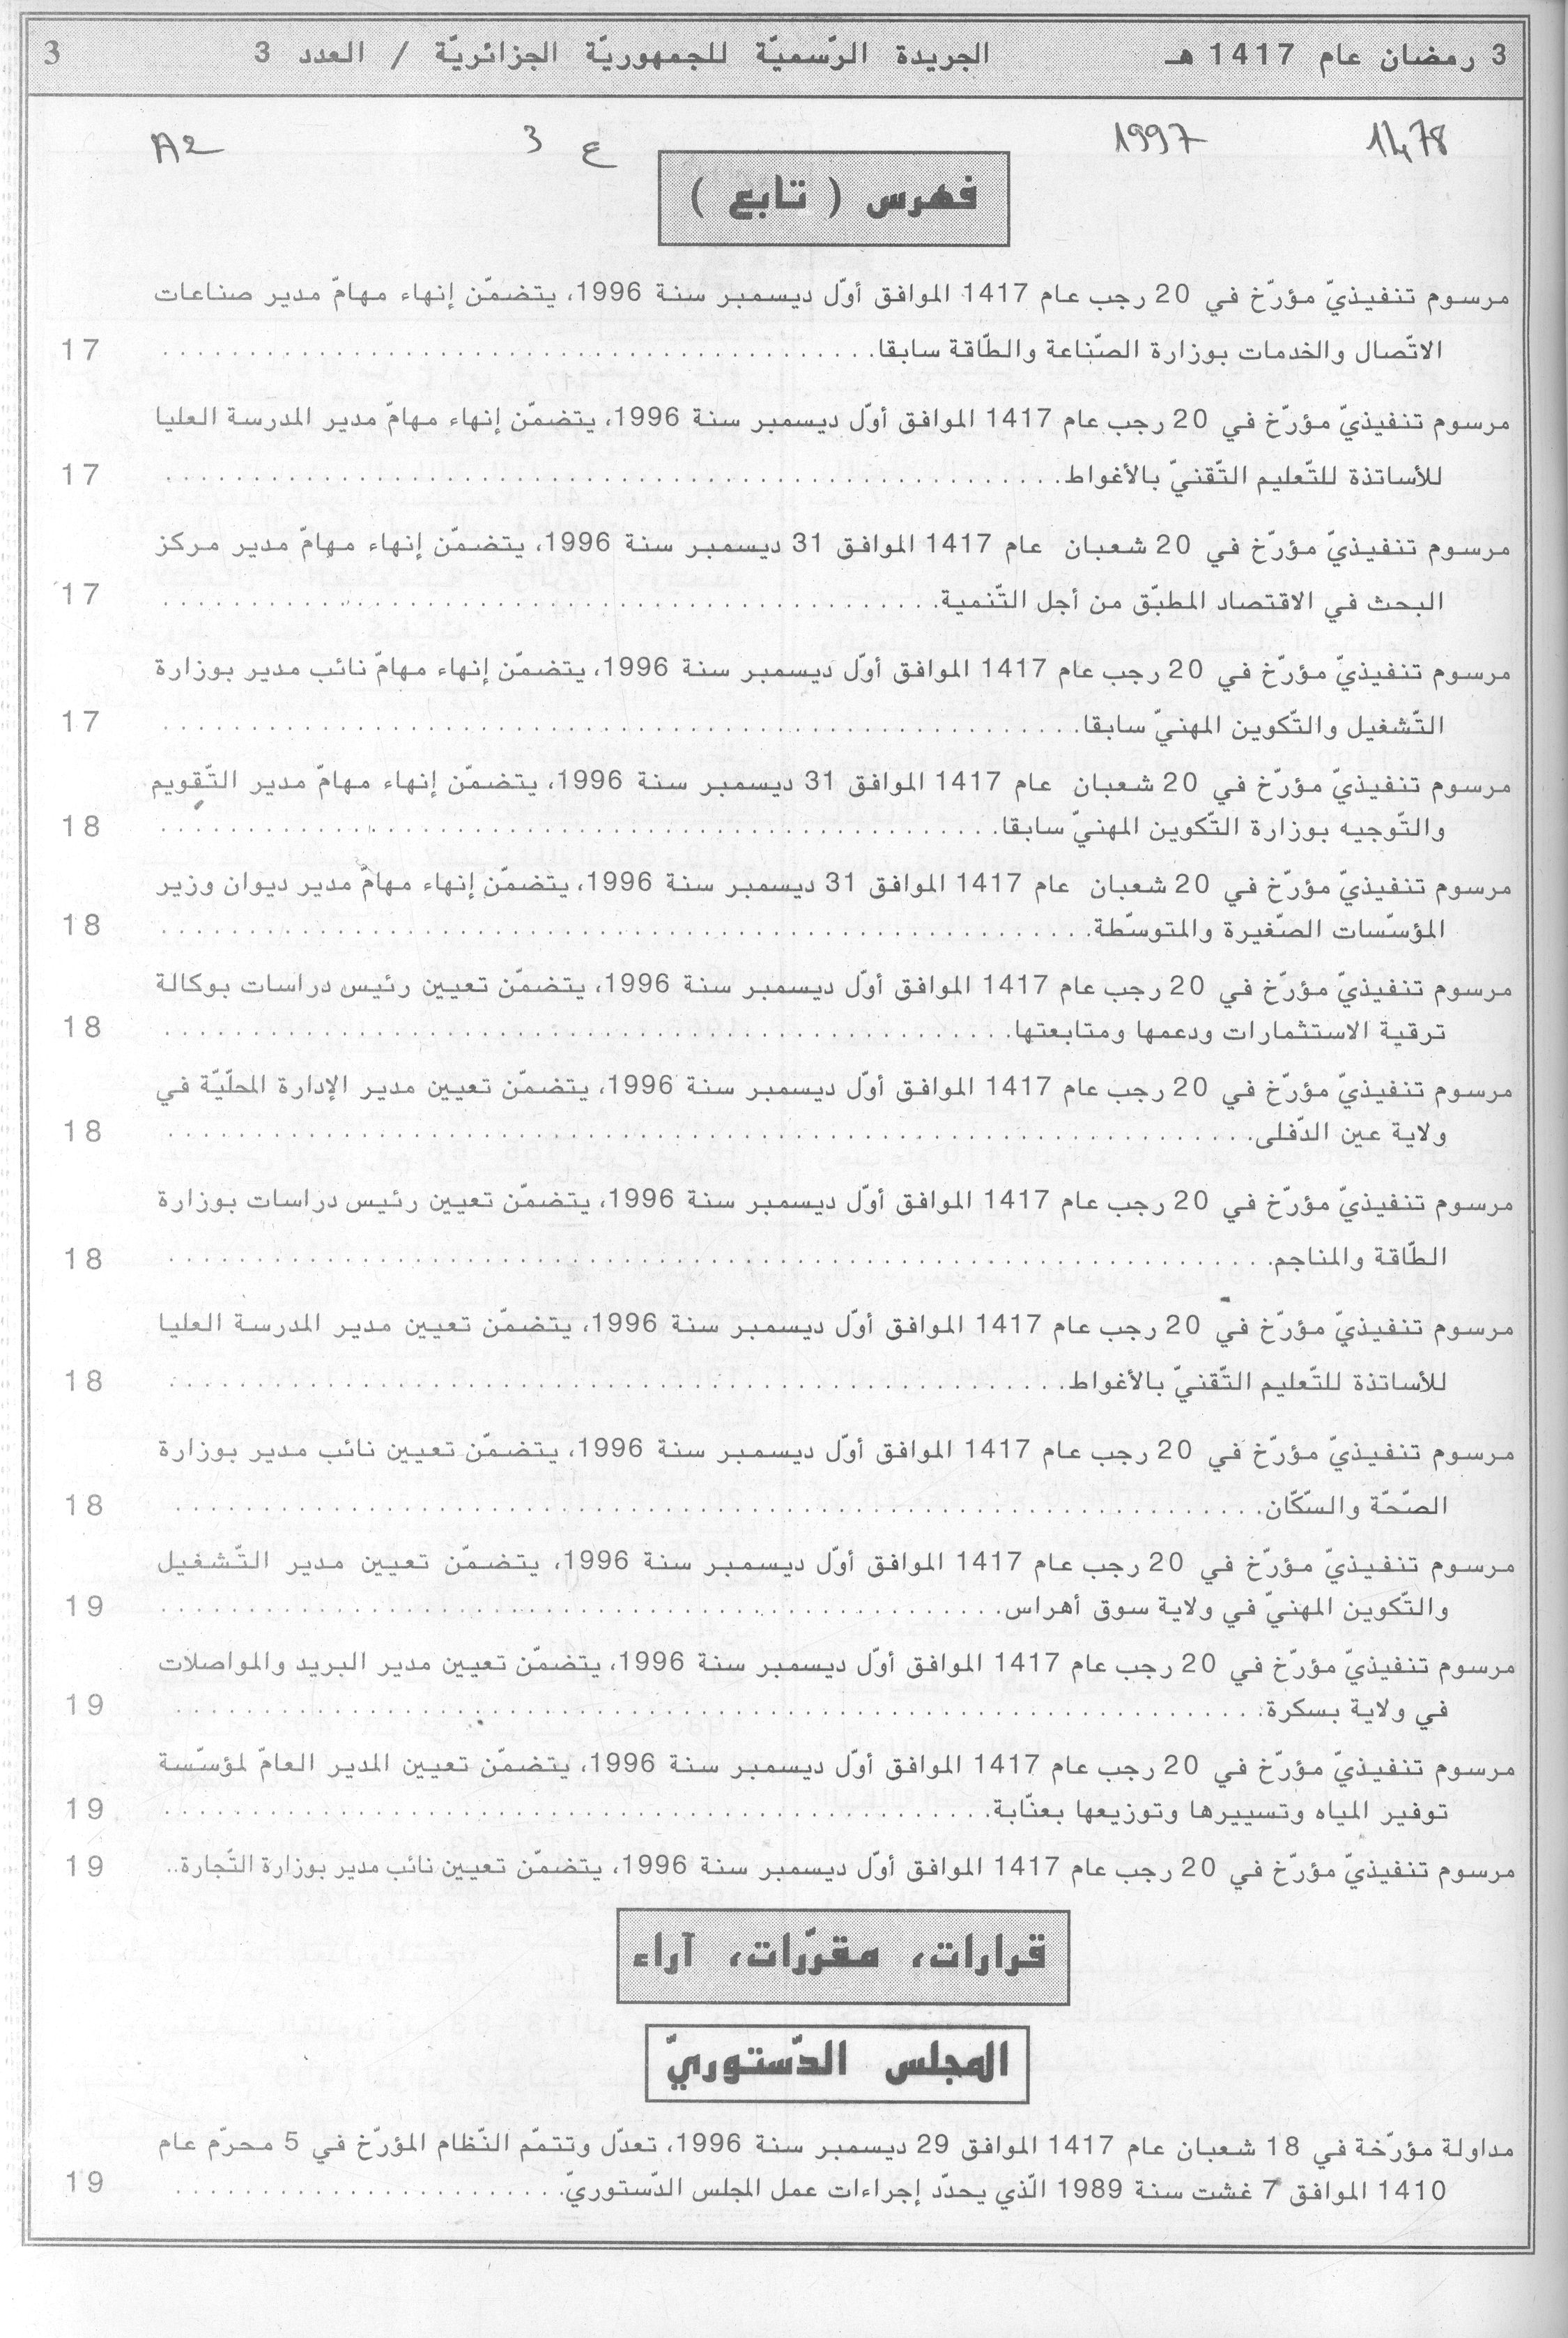 3 رمضان عام 1417 هـ الجريدة الرّسميّة للجمهوريّة الجزائريّة / العدد 3 3
1478 1997 ع 3 A2
فهرس ( تابع )
مرسوم تنفيذيّ مؤرّخ في 20 رجب عام 1417 الموافق أوّل ديسمبر سنة 1996، يتضمّن إنهاء مهامّ مدير صناعات
الاتّصال والخدمات بوزارة الصّناعة والطّاقة سابقا. 17
مرسوم تنفيذيّ مؤرّخ في 20 رجب عام 1417 الموافق أوّل ديسمبر سنة 1996، يتضمّن إنهاء مهامّ مدير المدرسة العليا
للأساتذة للتّعليم التّقنيّ بالأغواط. 17
مرسوم تنفيذيّ مؤرّخ في 20 شعبان عام 1417 الموافق 31 ديسمبر سنة 1996، يتضمّن إنهاء مهامّ مدير مركز
البحث في الاقتصاد المطبّق من أجل التّنمية. 17
مرسوم تنفيذيّ مؤرّخ في 20 رجب عام 1417 الموافق أوّل ديسمبر سنة 1996، يتضمّن إنهاء مهامّ نائب مدير بوزارة
التّشغيل والتّكوين المهنيّ سابقا. 17
مرسوم تنفيذيّ مؤرّخ في 20 شعبان عام 1417 الموافق 31 ديسمبر سنة 1996، يتضمّن إنهاء مهامّ مدير التّقويم
والتّوجيه بوزارة التّكوين المهنيّ سابقا. 18
مرسوم تنفيذيّ مؤرّخ في 20 شعبان عام 1417 الموافق 31 ديسمبر سنة 1996، يتضمّن إنهاء مهامّ مدير ديوان وزير
المؤسّسات الصّغيرة والمتوسّطة. 18
مرسوم تنفيذيّ مؤرّخ في 20 رجب عام 1417 الموافق أوّل ديسمبر سنة 1996، يتضمّن تعيين رئيس دراسات بوكالة
ترقية الاستثمارات ودعمها ومتابعتها. 18
مرسوم تنفيذيّ مؤرّخ في 20 رجب عام 1417 الموافق أوّل ديسمبر سنة 1996، يتضمّن تعيين مدير الإدارة المحلّيّة في
ولاية عين الدّفلى. 18
مرسوم تنفيذيّ مؤرّخ في 20 رجب عام 1417 الموافق أوّل ديسمبر سنة 1996، يتضمّن تعيين رئيس دراسات بوزارة
الطّاقة والمناجم. 18
مرسوم تنفيذيّ مؤرّخ في 20 رجب عام 1417 الموافق أوّل ديسمبر سنة 1996، يتضمّن تعيين مدير المدرسة العليا
للأساتذة للتّعليم التّقنيّ بالأغواط. 18
مرسوم تنفيذيّ مؤرّخ في 20 رجب عام 1417 الموافق أوّل ديسمبر سنة 1996، يتضمّن تعيين نائب مدير بوزارة
الصّحّة والسّكّان. 18
مرسوم تنفيذيّ مؤرّخ في 20 رجب عام 1417 الموافق أوّل ديسمبر سنة 1996، يتضمّن تعيين مدير التّشغيل
والتّكوين المهنيّ في ولاية سوق أهراس. 19
مرسوم تنفيذيّ مؤرّخ في 20 رجب عام 1417 الموافق أوّل ديسمبر سنة 1996، يتضمّن تعيين مدير البريد والمواصلات
في ولاية بسكرة. 19
مرسوم تنفيذيّ مؤرّخ في 20 رجب عام 1417 الموافق أوّل ديسمبر سنة 1996، يتضمّن تعيين المدير العامّ لمؤسّسة
توفير المياه وتسييرها وتوزيعها بعنّابة. 19
مرسوم تنفيذيّ مؤرّخ في 20 رجب عام 1417 الموافق أوّل ديسمبر سنة 1996، يتضمّن تعيين نائب مدير بوزارة التّجارة.. 19
قرارات، مقرّرات، آراء
المجلس الدّستوريّ
مداولة مؤرّخة في 18 شعبان عام 1417 الموافق 29 ديسمبر سنة 1996، تعدّل وتتمّم النّظام المؤرّخ في 5 محرّم عام
1410 الموافق 7 غشت سنة 1989 الّذي يحدّد إجراءات عمل المجلس الدّستوريّ. 19